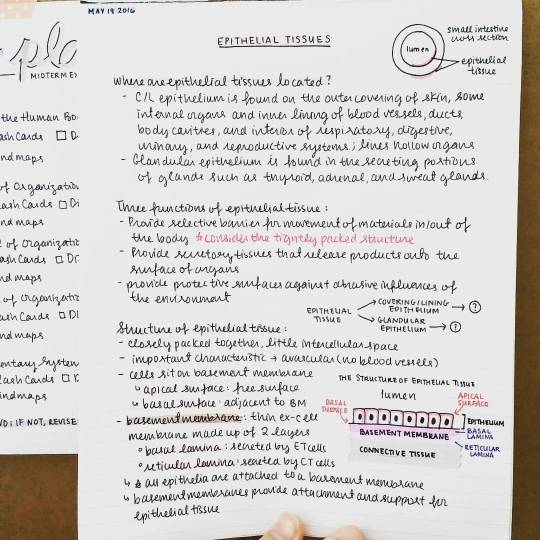 MAY 19 2016
EPITHELIAL TISSUES
small intestine
cross section
lumen
epithelial
tissue
Where are epithelial tissues located?
- C/L epithelium is found on the outer covering of skin, some
internal organs and inner lining of blood vessels, ducts,
body cavities, and interior of respiratory, digestive,
urinary, and reproductive systems; lines hollow organs
- Glandular epithelium is found in the secreting portions
of glands such as thyroid, adrenal, and sweat glands.
Three functions of epithelial tissue:
- Provide selective barrier for movement of materials in/out of
the body *consider the tightly packed structure
- Provide secretory tissues that release products onto the
surface of organs
- provide protective surfaces against abrasive influences of
the environment
EPITHELIAL TISSUE
→ COVERING/LINING EPITHELIUM → ?
→ GLANDULAR EPITHELIUM → ?
Structure of epithelial tissue:
- closely packed together, little intercellular space
- important characteristic → avascular (no blood vessels)
- cells sit on basement membrane
↳ apical surface: free surface
↳ basal surface: adjacent to BM
- basement membrane: thin ex-cell
membrane made up of 2 layers
° basal lamina: secreted by ET cells
° reticular lamina: secreted by CT cells
↳ all epithelia are attached to a basement membrane
↳ basement membranes provide attachment and support for
epithelial tissue
THE STRUCTURE OF EPITHELIAL TISSUE
lumen
APICAL
SURFACE
BASAL
SURFACE
EPITHELIUM
BASEMENT MEMBRANE
BASAL
LAMINA
RETICULAR
LAMINA
CONNECTIVE TISSUE
MIDTERM EX
the Human Bo
ash Cards □ D
ndmaps
of Organizatio
lash Cards □ Di
ndmaps
of Organizatic
lash Cards □ D
indmaps
of Organizatio
ash Cards □ DI
ndmaps
entary System
lash Cards □ D
indmaps
ND; IF NOT, REVISE